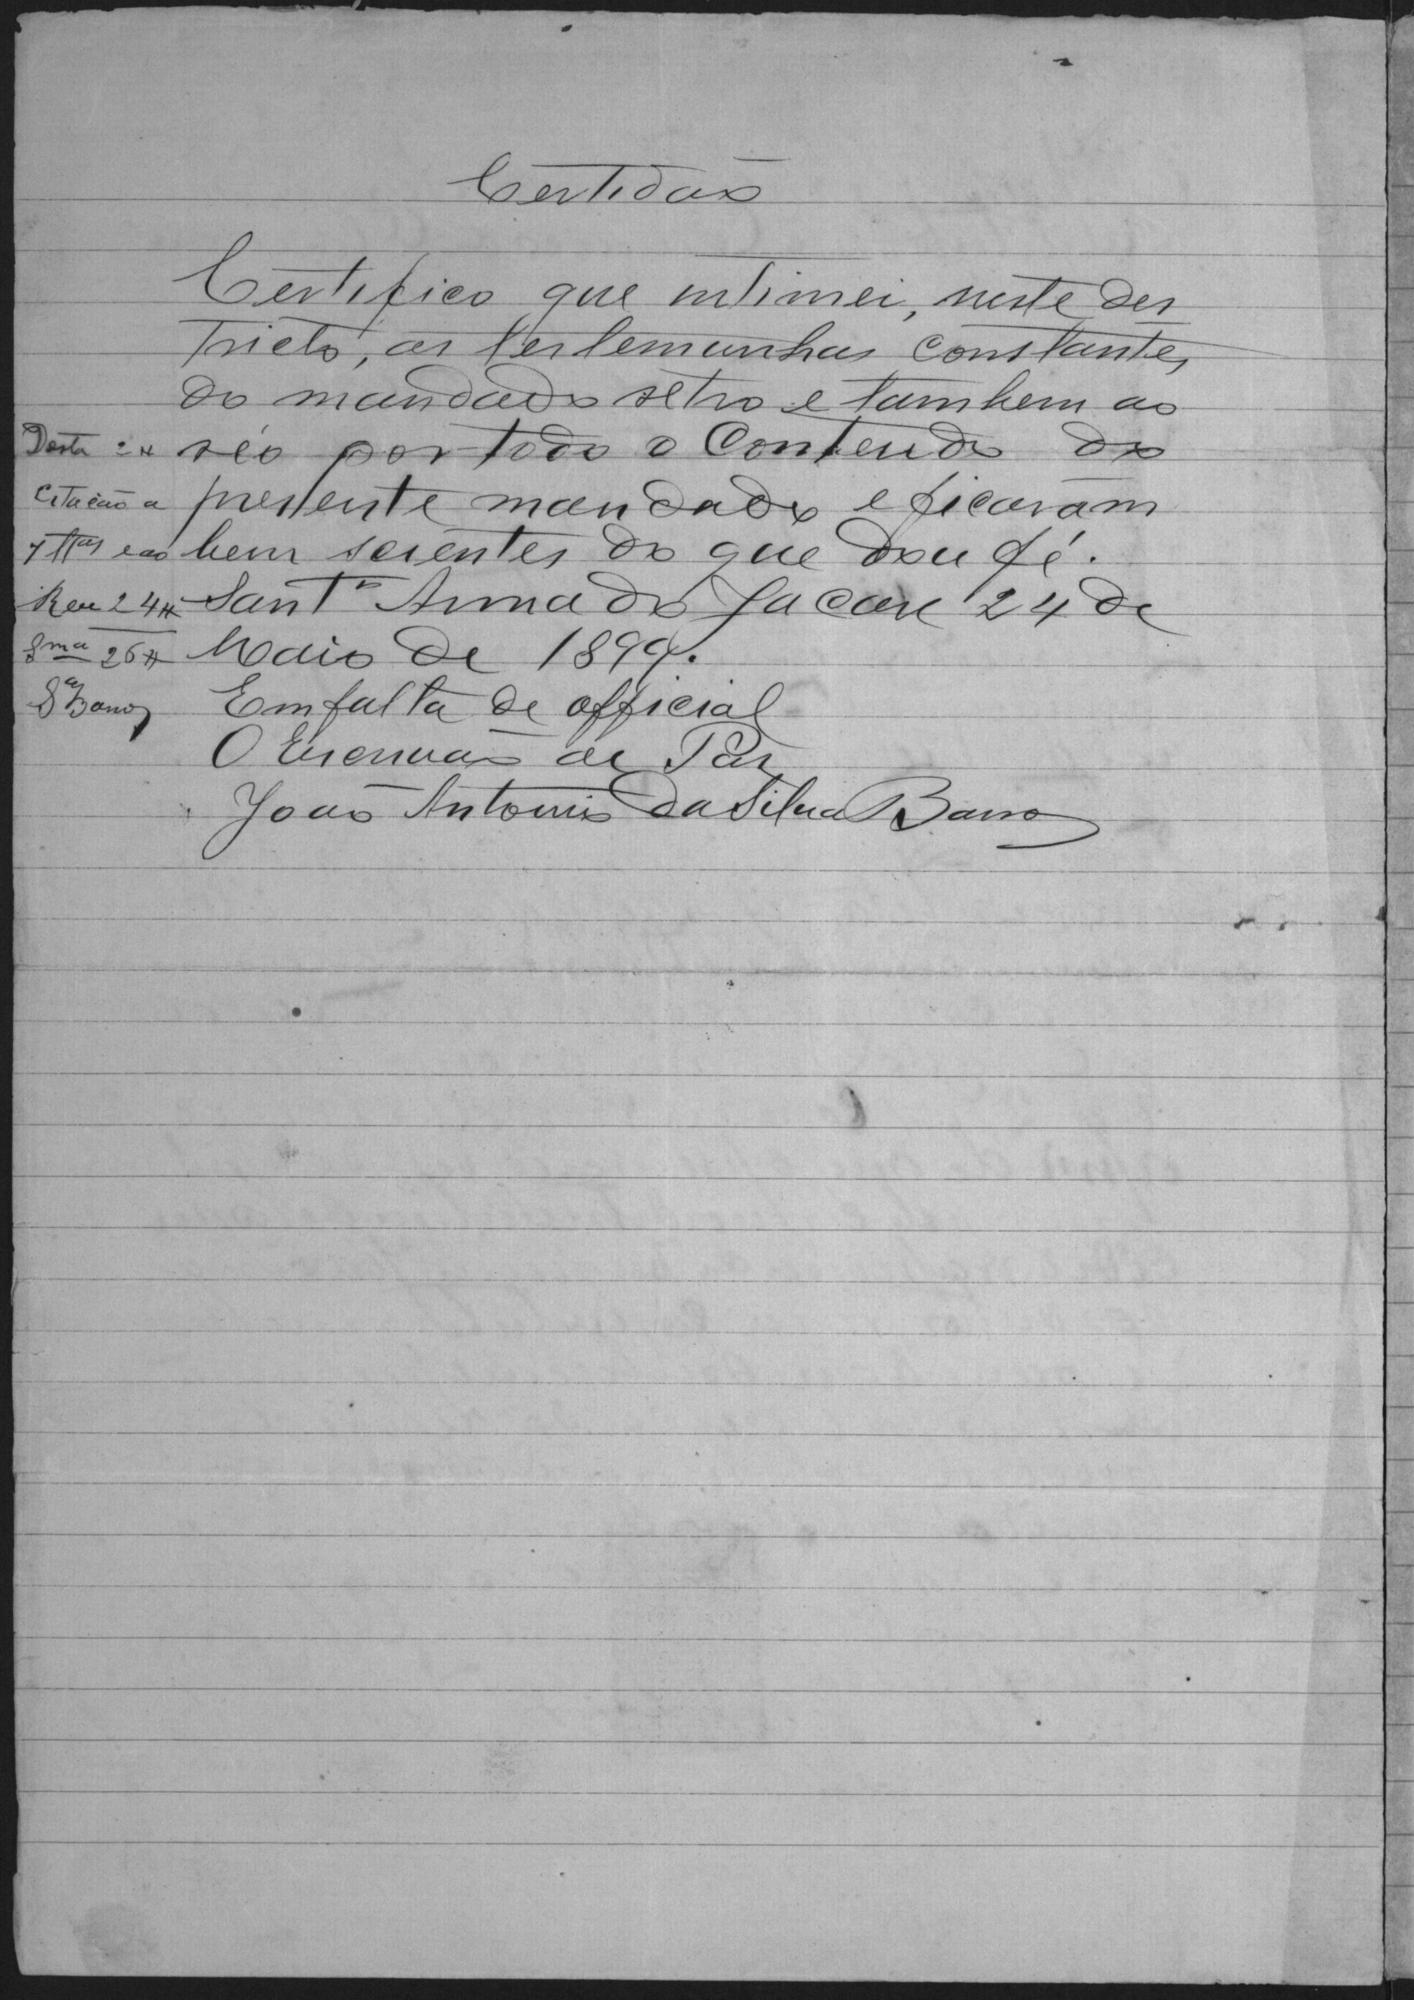 Certidão
Certifico que intimei, neste des
tricto, as testemunhas constantes
do mandado retro e tambem ao
réo por todo o contendo do
presente mandado e ficaram
bem scientes do que dou fé.
Sant'Anna do Jacaré 24 de
Maio de 1899.
Em falta de official
O Escrivão de Paz
João Antonio da Silva Barros
Desta 2#
Citação a
7 ttas e ao
Reu 24#
Sma 26#
Sa Barros